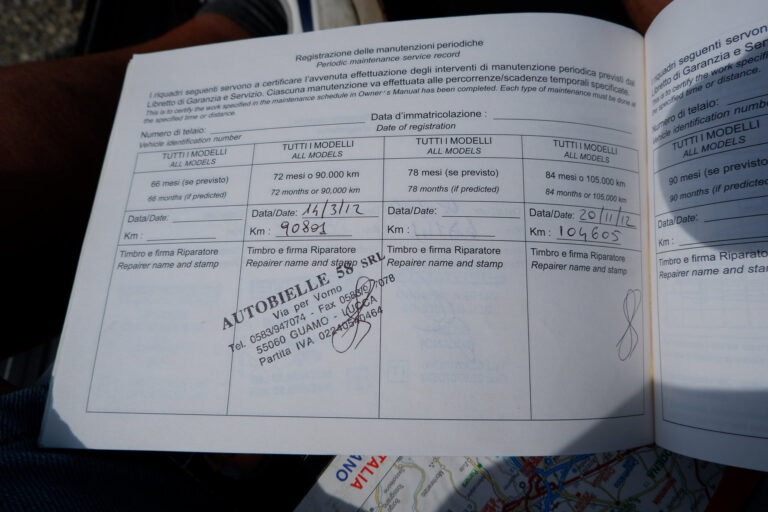 Registrazione delle manutenzioni periodiche
Periodic maintenance service record
I riquadri seguenti servono a certificare l'avvenuta effettuazione degli interventi di manutenzione periodica previsti dal
Libretto di Garanzia e Servizio. Ciascuna manutenzione va effettuata alle percorrenze/scadenze temporali specificate.
This is to certify the work specified in the maintenance schedule in Owner's Manual has been completed. Each type of maintenance must be done at
the specified time or distance.
Numero di telaio:
Vehicle identification number
Data d'immatricolazione :
Date of registration
TUTTI I MODELLI
ALL MODELS
66 mesi (se previsto)
66 months (if predicted)
Data/Date:
Km :
Timbro e firma Riparatore
Repairer name and stamp
TUTTI I MODELLI
ALL MODELS
72 mesi o 90.000 km
72 months or 90,000 km
Data/Date: 14/3/12
Km : 90801
Timbro e firma Riparatore
Repairer name and stamp
AUTOBIELLE 58 SRL
Via per Vorno
Tel. 0583/947074 - Fax
55060 GUAMO - LUCCA
Partita IVA
TUTTI I MODELLI
ALL MODELS
78 mesi (se previsto)
78 months (if predicted)
Data/Date:
Km :
Timbro e firma Riparatore
Repairer name and stamp
TUTTI I MODELLI
ALL MODELS
84 mesi o 105.000 km
84 months or 105.000 km
Data/Date: 20/11/12
Km : 104605
Timbro e firma Riparatore
Repairer name and stamp
I riquadri seguenti servono
Libretto di Garanzia e Serv
This is to certify the work speci
the specified time or distance.
Numero di telaio:
Vehicle identification numb
TUTTI I MODELLI
ALL MODELS
90 mesi (se previsto)
90 months (if predicted)
Data/Date:
Km :
Timbro e firma Riparato
Repairer name and stam
ITALIA